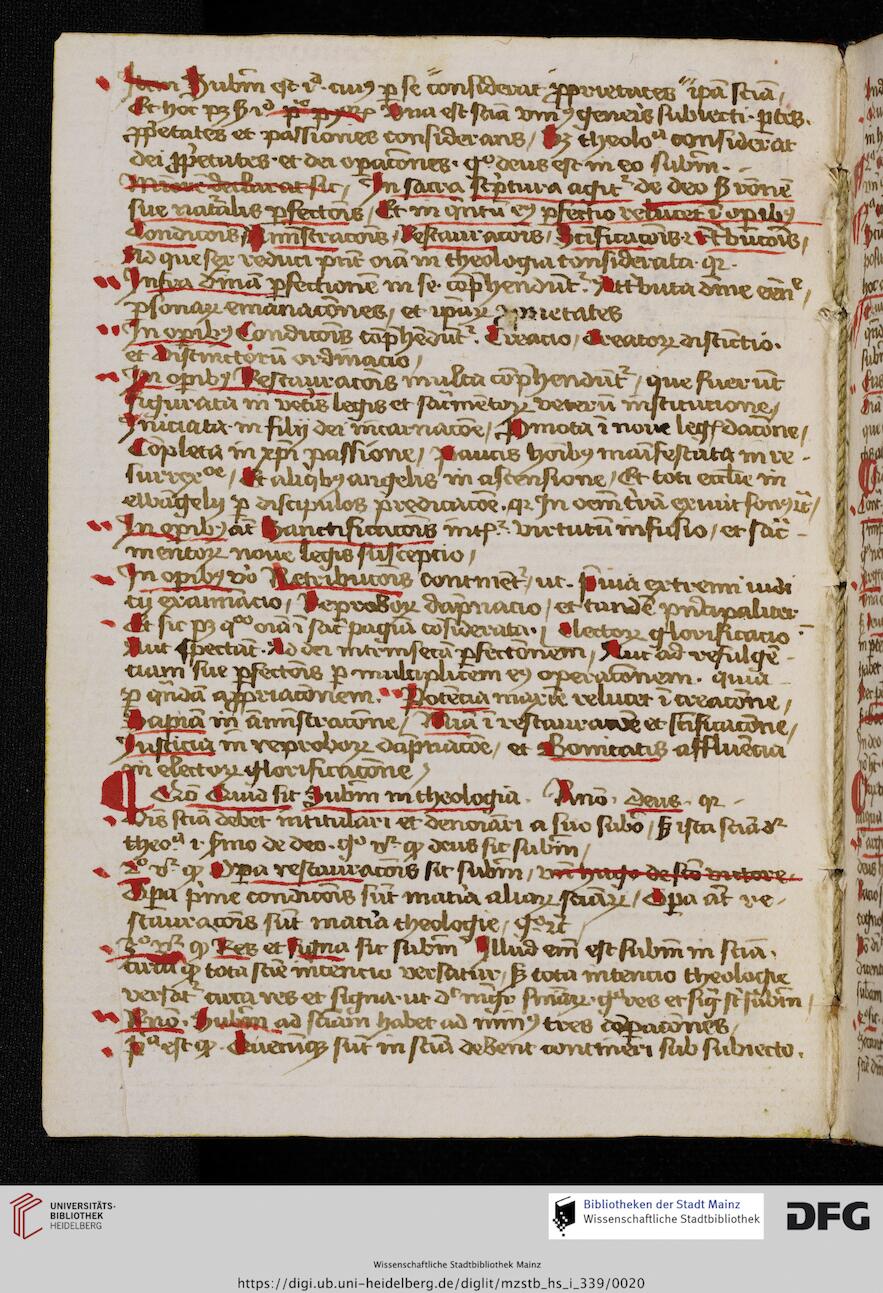 Subm est id cuius per se considerat proprietates ipa scia
Et hoc pz Una est scia unius generis subiecti partes
proprietates et passiones considerans / Sz theoloa considerat
dei proprietates et dei operacones qo deus est in eo subm
In sacra scriptura agit de deo
sue naturalis perfectois / Et in quantu eius perfectio relucet i operibus
Condicois / Aministracois / Restauracois / Scificacois Retbucois /
Ad que sex reduci prnt oia in theologia considerata qr
Infra diuinam perfectionem in se comphendunt Attributa diuine eence /
personarum emanacones / et ipsarum proprietates
In operibus Condicois comphedunt Creacio / Creatorum distinctio
et distinctorum ordinacio /
In operibus Restauracois multa comphendunt / que fuerunt
figurata in veteris legis et sacmentorum veterum institucione /
Iniciata in filij dei incarnacoe / Pmota i noue legis dacone /
Completa in xpi passione / Paucis hoibus manifestata in re-
surrexoe / Et aliquibus angelis in ascensione / Et toti ecclie in
ewangelij per discipulos predicacoe qr In oem tram exiuit sonus
In operibus at Sanctificacois virtutum infusio / et sac-
mentorum noue legis susceptio /
In operibus vo Retribucois continet ut Pima extremi iudi
cij examinacio / Reproborum dampnacio / et tandem principaliter
Electorum glorificacio
Et sic pz quo oia i sac pagina cosiderata
Aut spectant Ad dei intrinseca perfectionem / Aut ad refulgen-
ciam sue perfectois per multiplicem eius operaconem quia
per quandam appropriaconem Potencia maxie relucet i creacone /
Sapia in aministracone / Mia i restauracone et scificacone /
Iusticia in reproborum dampnacoe / et Bonitatis affluencia
in electorum glorificacione /
Questio Quid sit Subm in theologia Rndeo deus qr
Ois scia debet intitulari et denoiari a suo subo / sz ista scia dr
theoa i sermo de deo qo vr quod deus sit subm /
2o vr quod Opa restauracois sit subm / vn hugo de sco victore
Opa prime condicois sunt materia aliarum sciarum / Opa at re-
stauracois sunt materia theologie /
3o vr quod Res et signa sit subm Illud eni est subm in scia
circa quod tota scie intencio versatur / sz tota intencio theologie
versatur circa res et signa ut dt magister sentenciarum qo res et signa sunt subm
Rndeo Subm ad sciam habet ad minus tres comparacones /
pa est quod Quecunque sunt in scia debent contineri sub subiecto
UNIVERSITÄTS-
BIBLIOTHEK
HEIDELBERG
Bibliotheken der Stadt Mainz
Wissenschaftliche Stadtbibliothek
DFG
Wissenschaftliche Stadtbibliothek Mainz
https://digi.ub.uni-heidelberg.de/diglit/mzstb_hs_i_339/0020